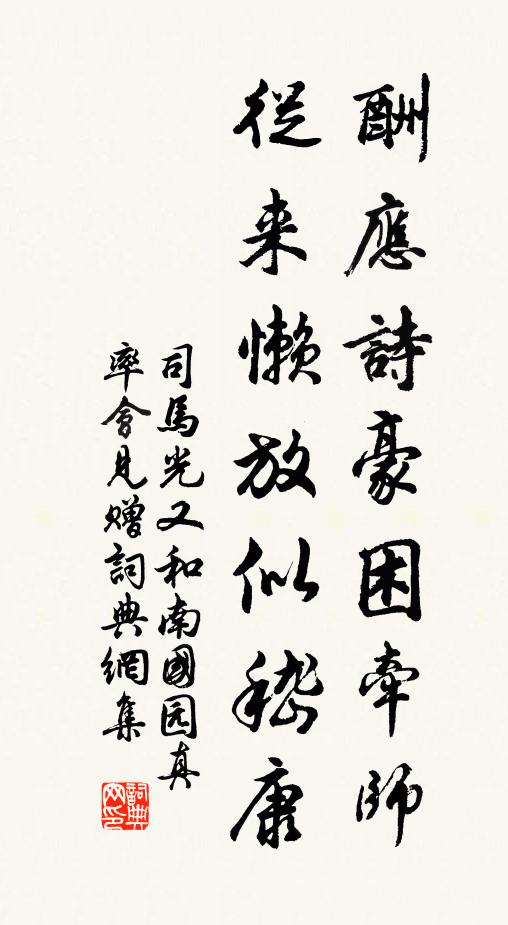 酬應詩豪困牽師
從来懶放似嵇康
司馬光又和南國园真
率會見贈詞典網集
詞典
网印